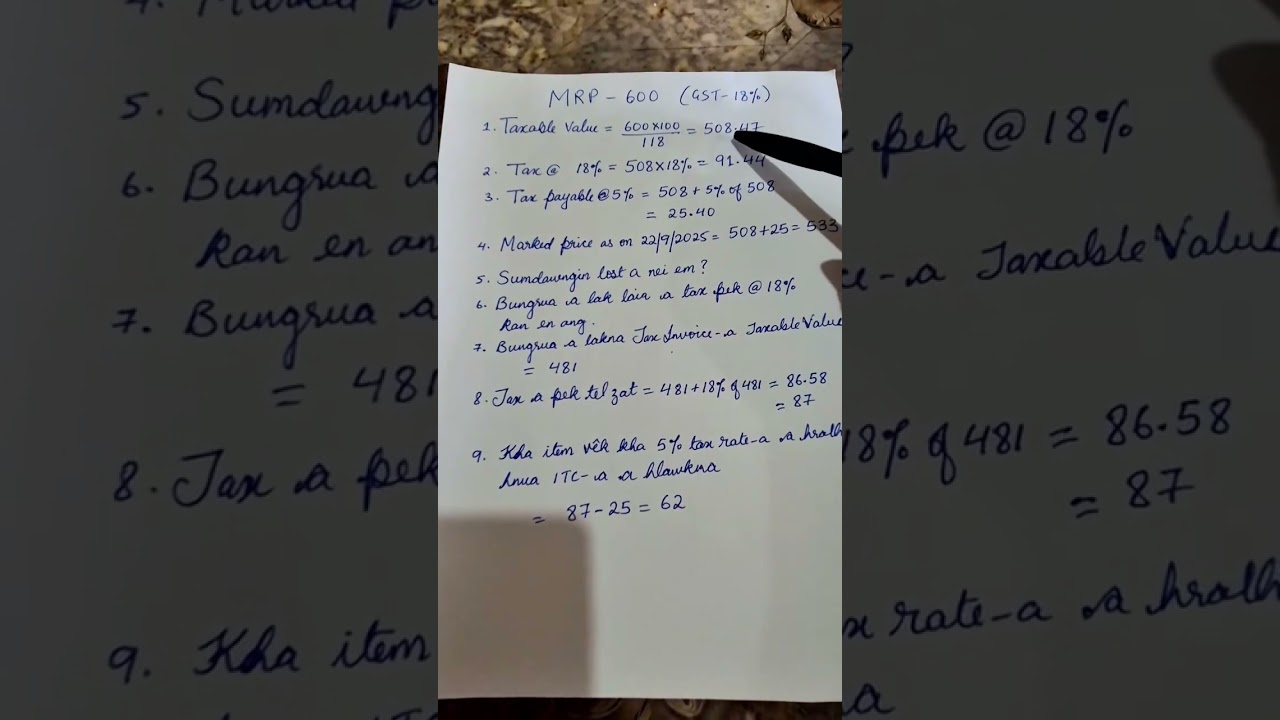 MRP - 600 (GST - 18%)
1. Taxable Value = 600x100 / 118 = 508.47
2. Tax @ 18% = 508x18% = 91.44
3. Tax payable @ 5% = 508 + 5% of 508
= 25.40
4. Marked price as on 22/9/2025 = 508+25 = 533
5. Sumdawngin lost a nei em?
6. Bungrua a lak lain a tax pek @ 18%
kan en ang.
7. Bungrua a lakna Tax Invoice-a Taxable Value
= 481
8. Tax a pek tel zat = 481+18% of 481 = 86.58
= 87
9. Kha item vêk kha 5% tax rate-a a hralh
hnua ITC-a a hlawkna
= 87-25 = 62